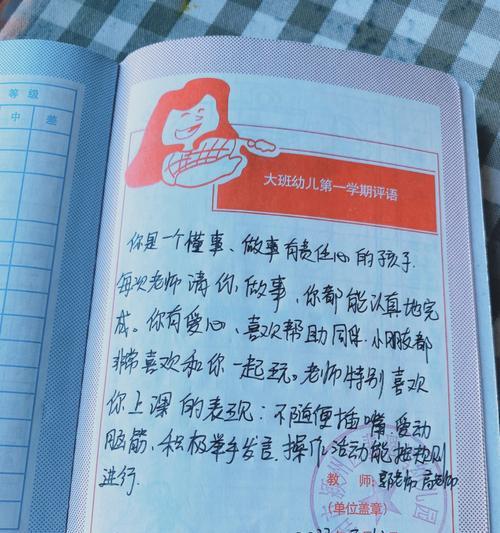 等级
中 差
大班幼儿第一学期评语
你是一个懂事、做事有责任心的孩子.
每次老师请你做事,你都能认真地完
成。你有爱心、喜欢帮助同伴.小朋友都
非常喜欢和你一起玩。老师特别喜欢
你上课的表现:不随便插嘴.爱动
脑筋、积极举手发言.操作活动能按规则
进行.
教 师:郭老师
老师
(单位盖章)